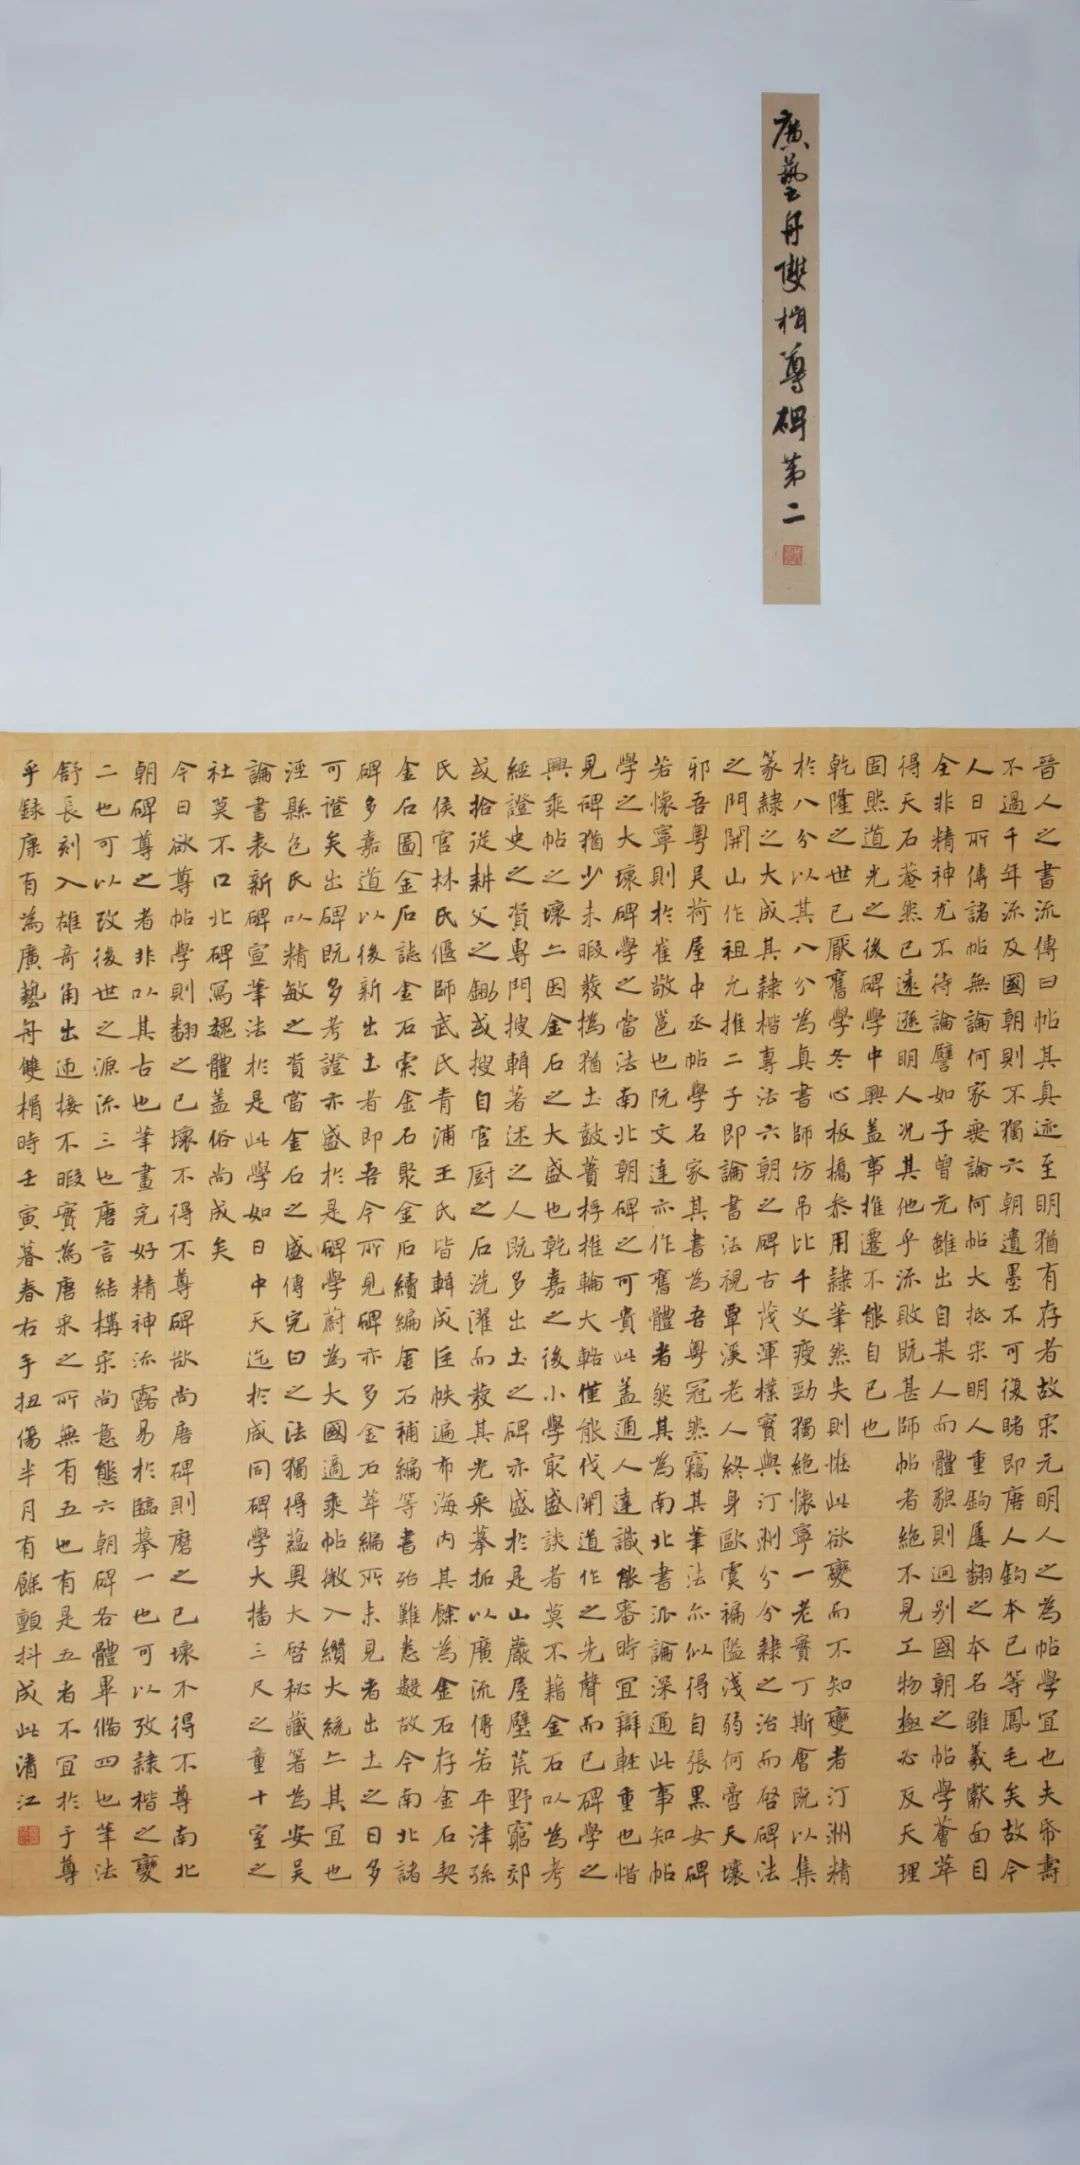 廣藝舟雙楫尊碑第二
晋人之書流傳曰帖其真迹至明猶有存者故宋元明人之為帖學宜也夫帋壽
不過千年流及國朝則不獨六朝遺墨不可復睹即唐人鉤本已等鳳毛矣故今
人日所傳諸帖無論何家無論何帖大抵宋明人重鉤屢翻之本名雖羲獻面目
全非精神尤不待論譬如子曾元雖出自某人而體貌則迥别國朝之帖學薈萃
得天石菴然已遠遜明人況其他乎流敗既甚師帖者絕不見工物極必反天理
固然道光之後碑學中興蓋事推遷不能自已也
乾隆之世已厭舊學冬心板橋參用隸筆然失則怪此欲變而不知變者汀洲精
於八分以其八分為真書師仿吊比千文瘦勁獨絕懷寧一老實丁斯會既以集
篆隸之大成其隸楷專法六朝之碑古茂渾樸實與汀洲分分隸之治而啓碑法
之門開山作祖允推二子即論書法視覃溪老人終身歐虞褊隘淺弱何啻天壤
邪吾粤吴荷屋中丞帖學名家其書為吾粤冠然窺其筆法亦似得自張黑女碑
若懷寧則於崔敬邕也阮文達亦作舊體者然其為南北書派論深通此事知帖
學之大壞碑學之當法南北朝碑之可貴此蓋通人達識能審時宜辯輊重也惜
見碑猶少未暇發撝猶土鼓蕢桴推輪大輅僅能伐開道作之先聲而已碑學之
興乘帖之壞亠因金石之大盛也乾嘉之後小學最盛談者莫不籍金石以為考
經證史之資專門搜輯著述之人既多出土之碑亦盛於是山巖屋壁荒野窮郊
或拾從耕父之鋤或搜自官厨之石洗濯而發其光采摹拓以廣流傳若平津孫
氏侯官林氏偃師武氏青浦王氏皆輯成巨帙遍布海内其餘為金石存金石契
金石圖金石誌金石索金石聚金石續編金石補編等書殆難悉數故今南北諸
碑多嘉道以後新出土者即吾今所見碑亦多金石萃編所未見者出土之日多
可證矣出碑既多考證亦盛於是碑學蔚為大國適乘帖微入纘大統亠其宜也
涇縣包氏以精敏之資當金石之盛傳完白之法獨得蘊奥大啓秘藏著為安吴
論書表新碑宣筆法於是此學如日中天迄於咸同碑學大播三尺之童十室之
社莫不口北碑寫魏體蓋俗尚成矣
今日欲尊帖學則翻之已壞不得不尊碑欲尚唐碑則磨之已壞不得不尊南北
朝碑尊之者非以其古也筆畫完好精神流露易於臨摹一也可以攷隸楷之變
二也可以攷後世之源流三也唐言結構宋尚意態六朝碑各體畢備四也筆法
舒長刻入雄奇角出迎接不暇實為唐宋之所無有五也有是五者不宜於于尊
乎錄康有為廣藝舟雙楫時壬寅暮春右手扭傷半月有餘顫抖成此清江